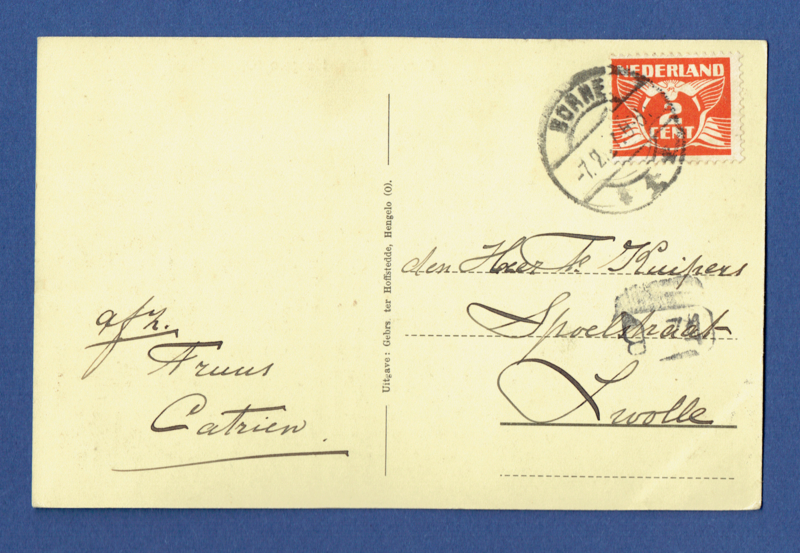 NEDERLAND
2
CENT
BORNE
-7.2.
den Heer F. Kuipers
Spoelstraat
Zwolle
Uitgave: Gebrs. ter Hoffstedde, Hengelo (O).
afz.
Truus
Catrien.